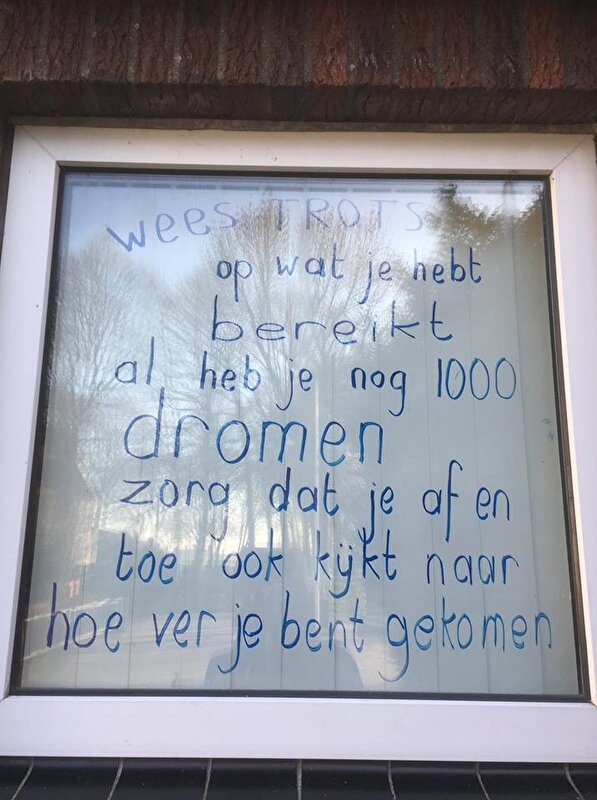 wees TROTS
op wat je hebt
bereikt
al heb je nog 1000
dromen
zorg dat je af en
toe ook kijkt naar
hoe ver je bent gekomen
11